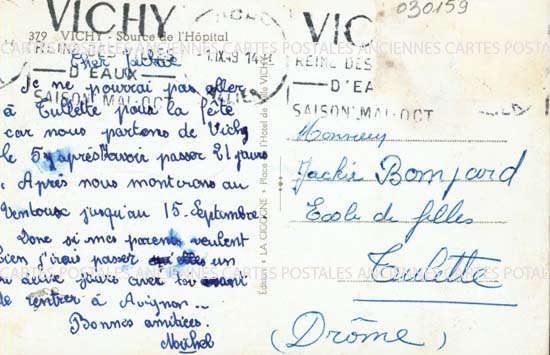 030159
VICHY
VICHY
379 - VICHY - Source de l'Hôpital
REINE DES
D'EAUX
SAISON MAI-OCT
1.IX.49 14H
ALLIER
REINE DES
D'EA
SAISON MAI-OCT
Cher Jackie
Je ne pourrai pas aller
à Tulette pour la fête
car nous partons de Vichy
le 5 y après avoir passer 21 jours
. Après nous monterons au
Ventoux jusqu'au 15 Septembre
Donc si mes parents veulent
bien j'irais passer un
ou deux jours avec toi avant
de rentrer à Avignon..
Bonnes amitiées.
Michel
Editions LA CIGOGNE - Place de l'Hôtel de Ville VICHY
Monsieur
Jackie Bonjard
Ecole de filles
Tulette
(Drôme)
CARTES POSTALES ANCIENNES CARTES POSTALES ANCIENNES